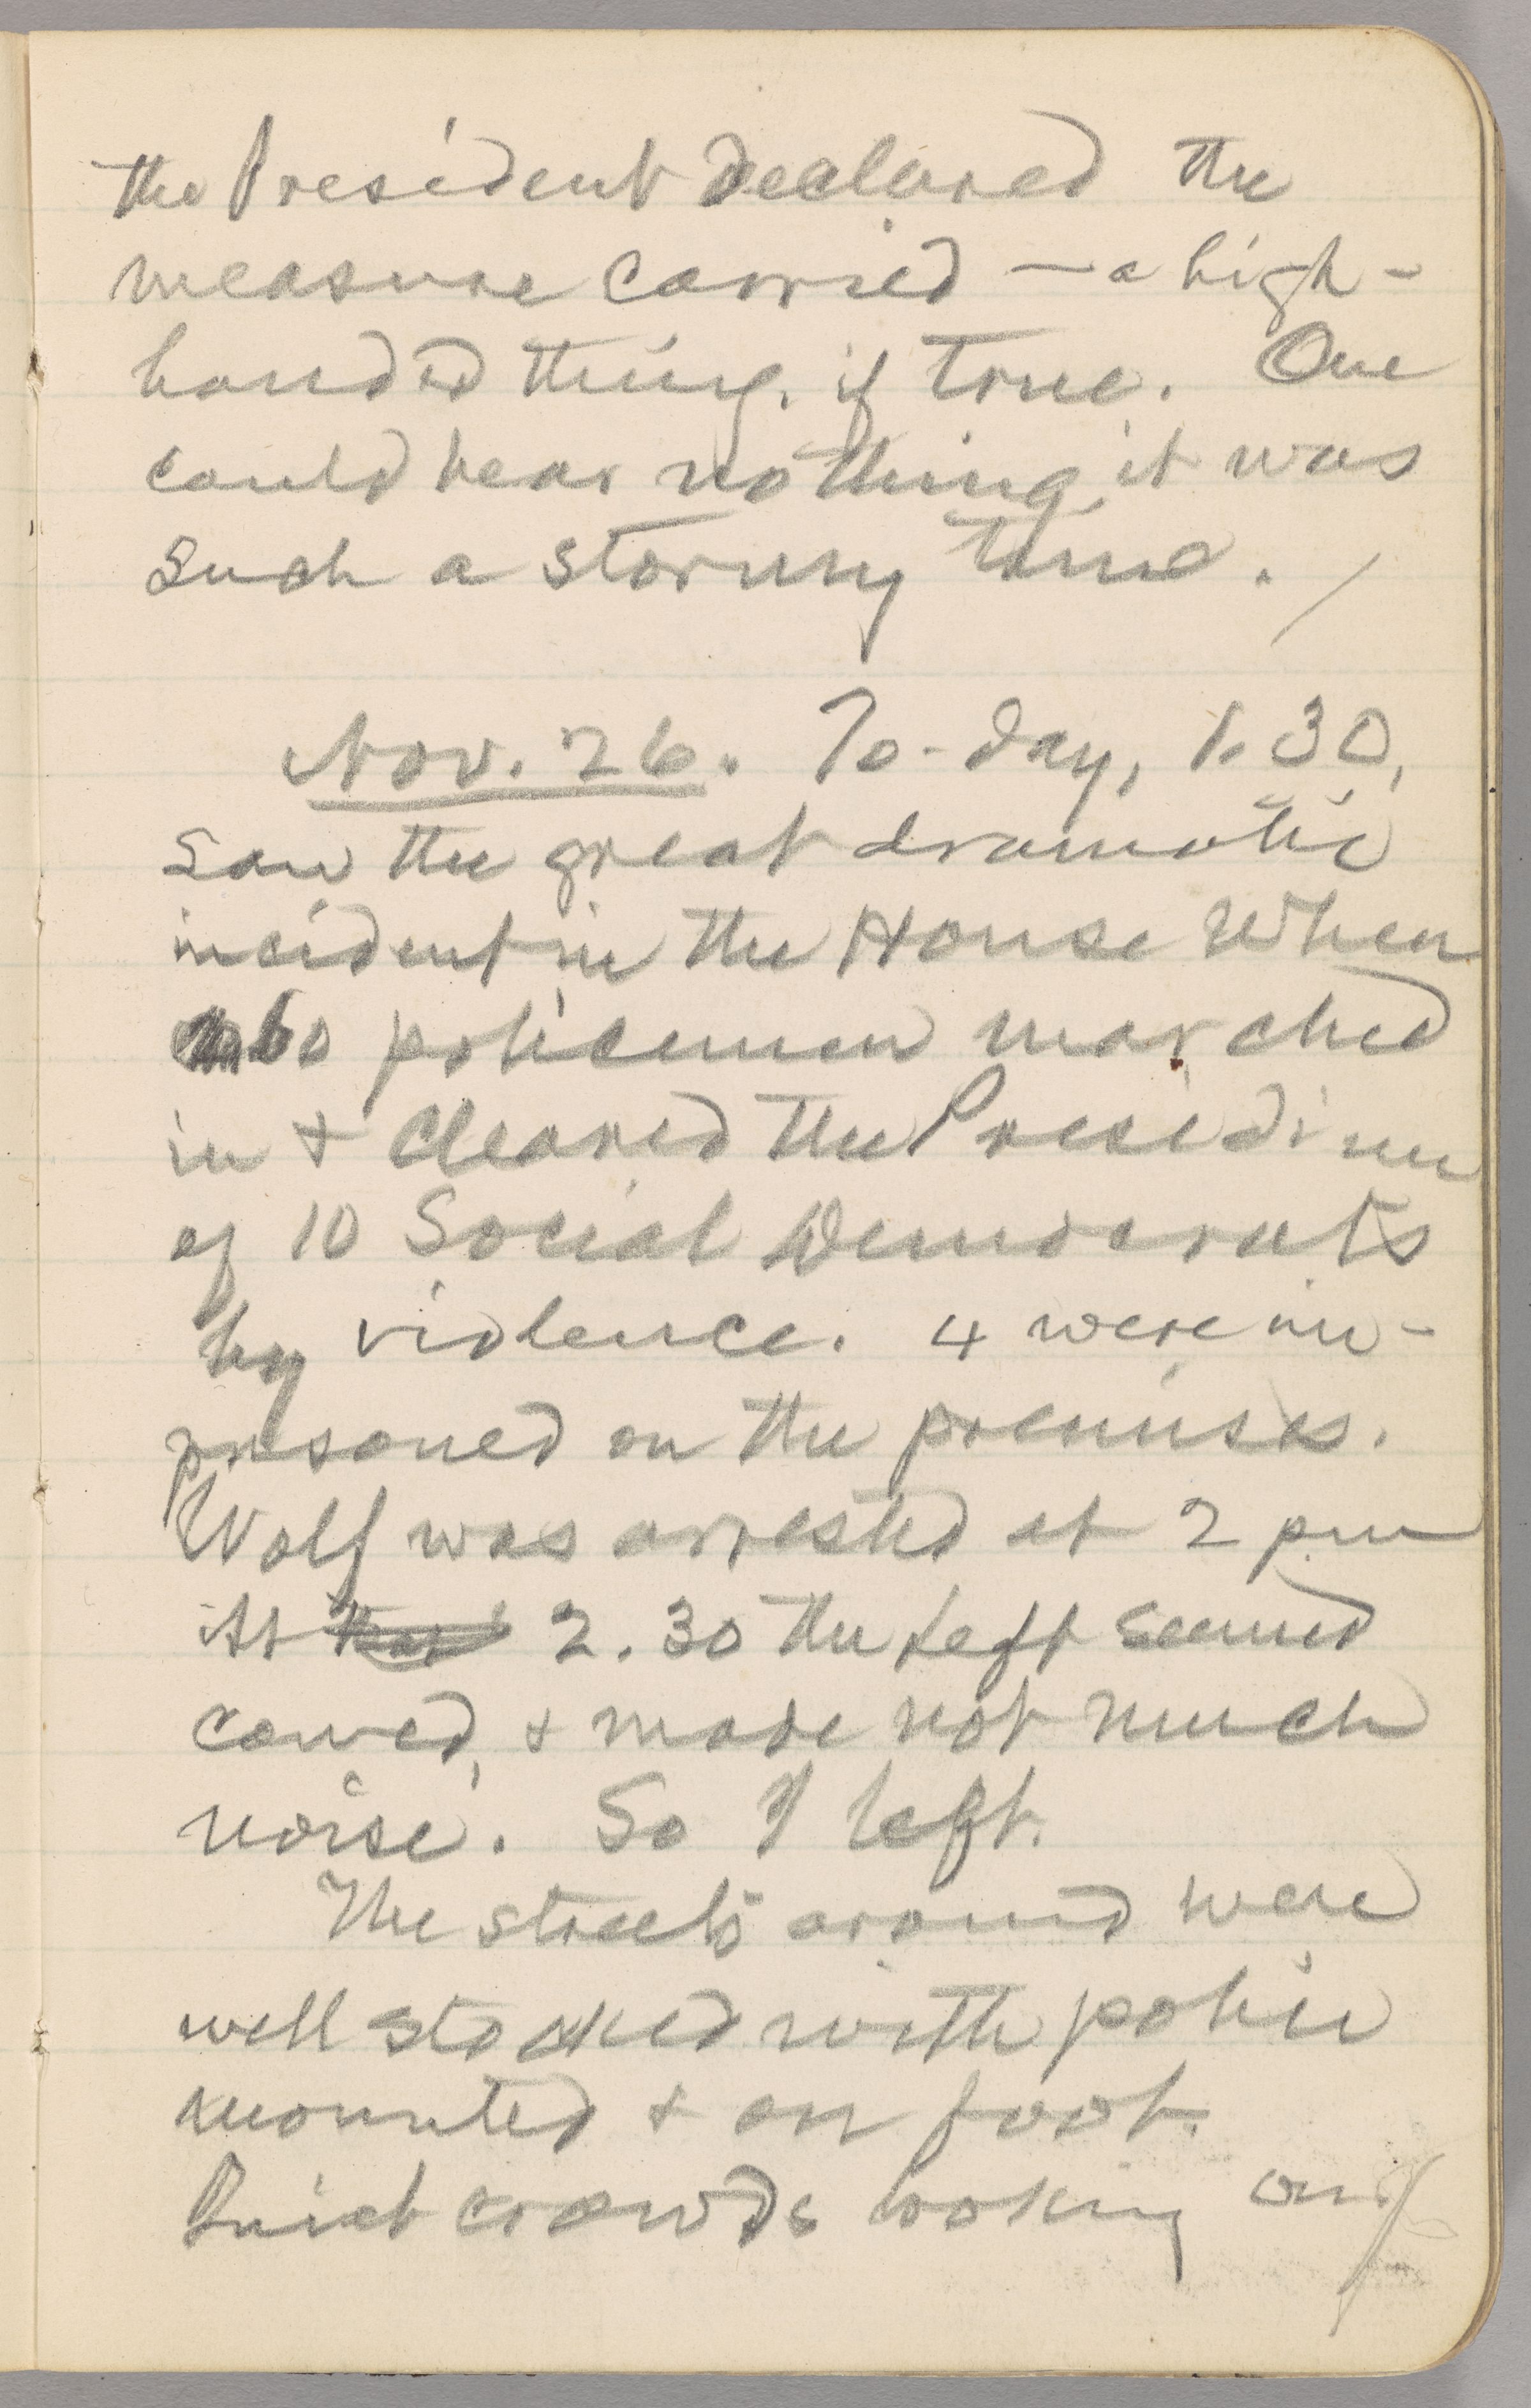 the President declared the
measure carried — a high-
handed thing, if true. One
could hear nothing, it was
such a stormy time.
Nov. 26. To-day, 1.30,
saw the great dramatic
incident in the House when
60 policemen marched
in & cleared the Presidium
of 10 Social Democrats
by violence. 4 were im-
prisoned on the premises.
Wolf was arrested at 2 pm
At 2.30 the Left seemed
cowed, & made not much
noise. So I left.
The streets around were
well stocked with police
mounted & on foot.
Quiet crowds looking on.